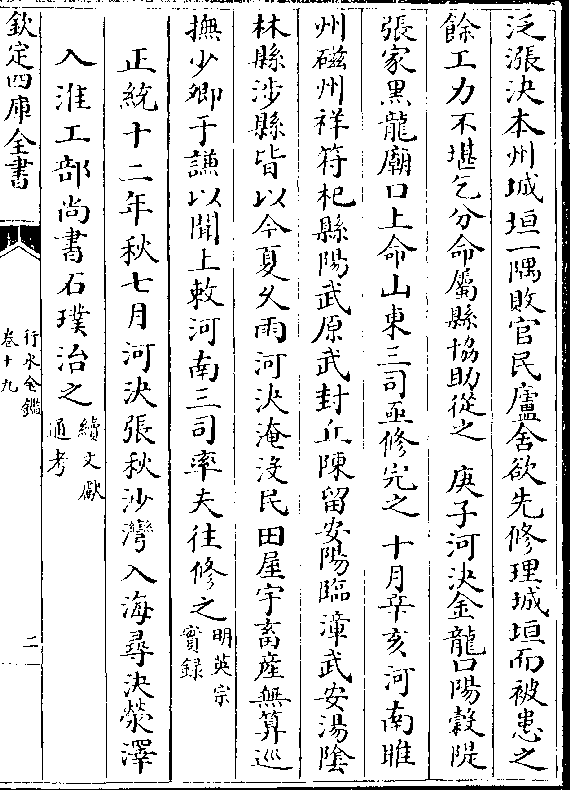 泛漲決本州城垣一隅敗官民廬舍欲先修理城垣而被患之
餘工力不堪乞分命屬縣協助從之　庚子河決金龍口陽穀隄
張家黑龍廟口上命山東三司亟修完之　十月辛亥河南睢
州磁州祥符杞縣陽武原武封丘陳留安陽臨漳武安湯陰
林縣涉縣皆以今夏久雨河決淹沒民田屋宇畜產無算巡
撫少卿于謙以聞上敕河南三司率夫往修之明英宗
實錄
正統十二年秋七月河決張秋沙灣入海尋決滎澤
入淮工部尚書石璞治之續文獻
通考
欽定四庫全書
行水金鑑
卷十九
二